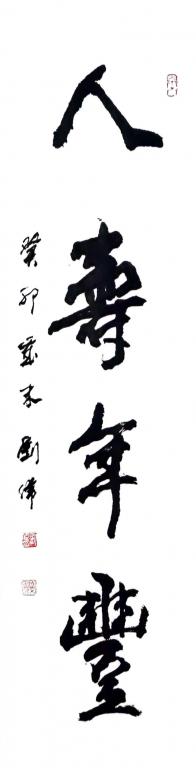 人壽年豐
癸卯歲末劉偉